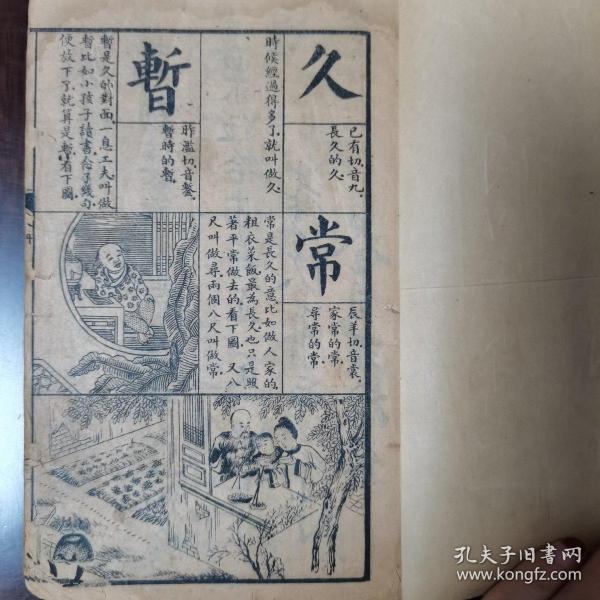 久
已有切.音九.
長久的久.
時候經過得多了.就叫做久.
暫
昨濫切.音鏨.
暫時的暫.
暫是久的對面.一息工夫.叫做
暫.比如小孩子讀書.念了幾句.
便放下了.就算是暫.看下圖.
常
辰羊切.音裳.
家常的常.
尋常的常.
常是長久的意.比如做人家的.
粗衣菜飯.最為長久.也只是照
著平常做去的.看下圖. 又八
尺叫做尋.兩個八尺叫做常.
孔夫子旧书网
www.kongfz.com